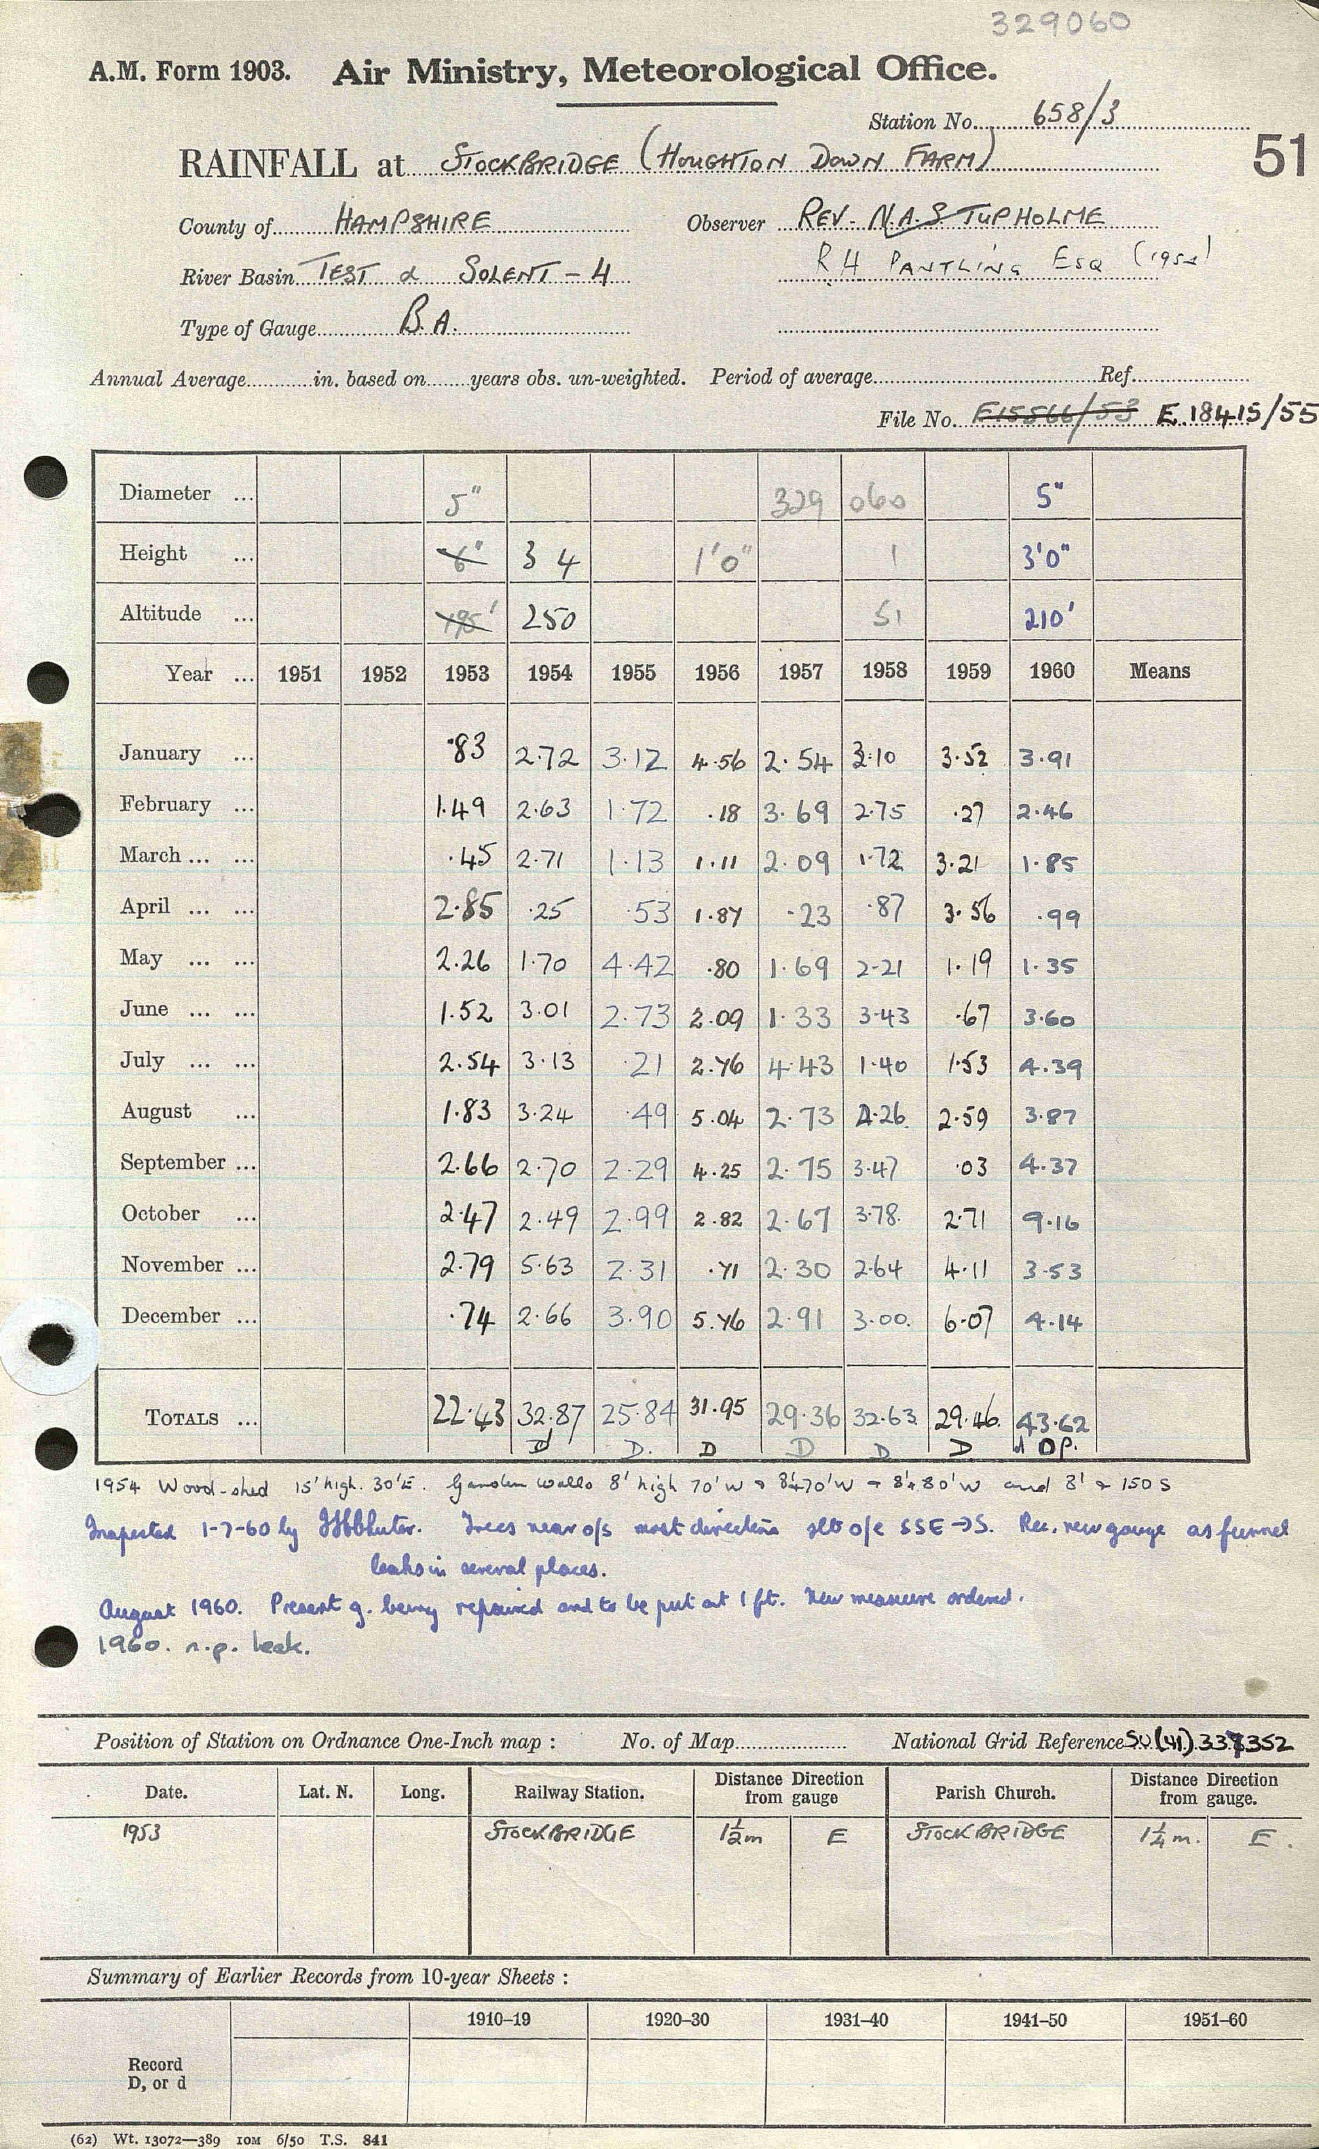 329060
A.M. Form 1903. Air Ministry, Meteorological Office.
Station No. 658/3
RAINFALL at STOCKBRIDGE (HOUGHTON DOWN FARM) 51
County of HAMPSHIRE Observer REV. N.A.S. TUPHOLME
River Basin TEST & SOLENT - 4 R H PANTLING ESQ
Type of Gauge B.A.
Annual Average in. based on years obs. un-weighted. Period of average Ref.
File No. E15566/53 E.18415/55
Diameter ... 5" 329 060 5"
Height ... 6" 3 4 1'0" 1 3'0"
Altitude ... 195' 250 51 210'
Year ... 1951 1952 1953 1954 1955 1956 1957 1958 1959 1960 Means
January ... .83 2.72 3.12 4.56 2.54 3.10 3.52 3.91
February ... 1.49 2.63 1.72 .18 3.69 2.75 .27 2.46
March ... ... .45 2.71 1.13 1.11 2.09 1.72 3.21 1.85
April ... ... 2.85 .25 .53 1.87 .23 .87 3.56 .99
May ... ... 2.26 1.70 4.42 .80 1.69 2.21 1.19 1.35
June ... ... 1.52 3.01 2.73 2.09 1.33 3.43 .67 3.60
July ... ... 2.54 3.13 .21 2.76 4.43 1.40 1.53 4.39
August ... 1.83 3.24 .49 5.04 2.73 4.26 2.59 3.87
September ... 2.66 2.70 2.29 4.25 2.75 3.47 .03 4.37
October ... 2.47 2.49 2.99 2.82 2.67 3.78 2.71 9.16
November ... 2.79 5.63 2.31 .71 2.30 2.64 4.11 3.53
December ... .74 2.66 3.90 5.76 2.91 3.00 6.07 4.14
TOTALS ... 22.43 32.87 25.84 31.95 29.36 32.63 29.46 43.62
d D. D D D D d DP.
1954 Wood-shed 15' high. 30'E. Garden walls 8' high 70'W & 8'&70'W & 8'&80'W and 8' & 150 S
Inspected 1-7-60 by Trees near o/s most directions slt o/e SSE→S. Rec. new gauge as funnel
leaks in several places.
August 1960. Present g. being repaired and to be put at 1 ft. New measure ordered.
1960. n.p. leak.
Position of Station on Ordnance One-Inch map : No. of Map National Grid Reference SU(41).337352
Date. Lat. N. Long. Railway Station. Distance Direction from gauge Parish Church. Distance Direction from gauge.
1953 STOCKBRIDGE 1½m E STOCKBRIDGE 1¼m. E.
Summary of Earlier Records from 10-year Sheets :
1910–19 1920–30 1931–40 1941–50 1951–60
Record
D, or d
(62) Wt. 13072—389 10M 6/50 T.S. 841